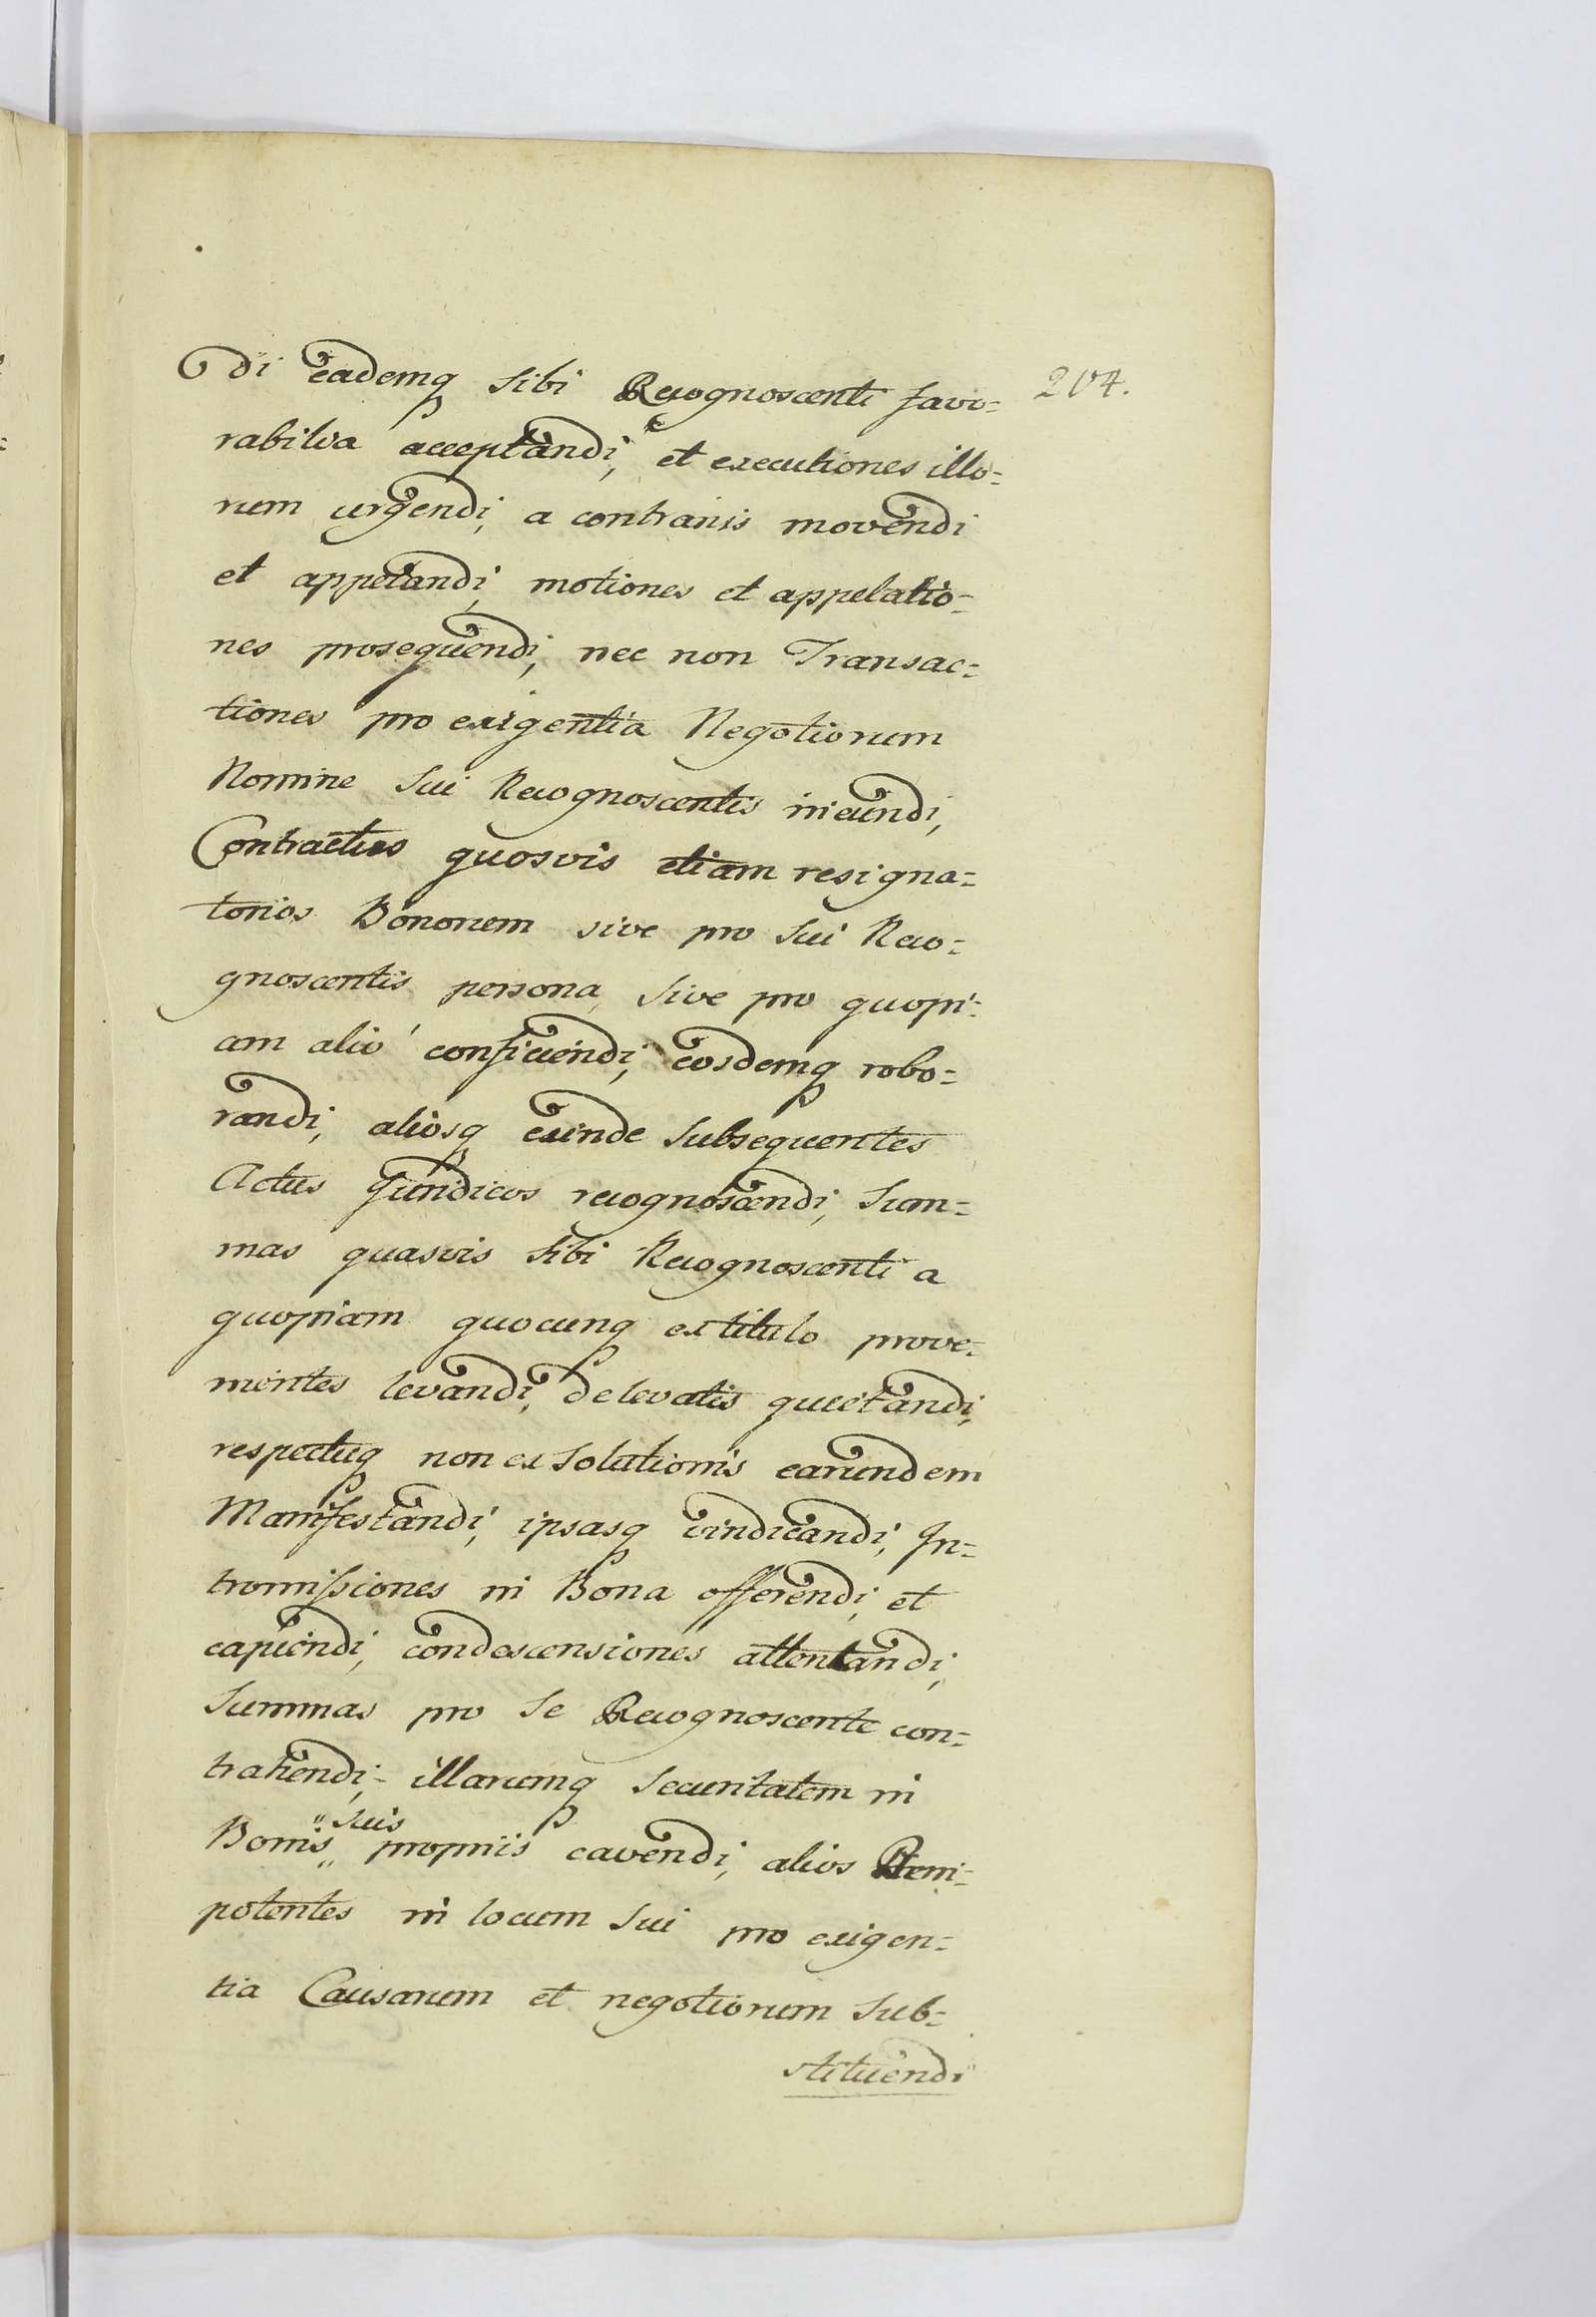 di eademq sibi Recognoscenti favo= 204.
rabilia acceptandi, et executiones illo=
rum urgendi, a contrariis movendi
et appelandi, motiones et appelatio=
nes prosequendi, nec non Transac=
tiones pro exigentia Negotiorum
Nomine sui Recognoscentis ineundi,
Contractus quosvis etiam resigna=
torios Bonorum sive pro sui Reco=
gnoscentis persona, sive pro quopi=
am alio conficiendi, eosdemq robo=
randi, aliosq exinde subsequentes
Actus Juridicos recognoscendi, Sum=
mas quasvis sibi Recognoscenti a
quopiam quocunq ex titulo prove=
nientes levandi, de levatis quietandi,
respectuq non ex solutionis earundem
Manifestandi, ipsasq vindicandi, In=
tromissiones in Bona offerendi, et
capiendi, condescensiones attentandi,
Summas pro se Recognoscente con=
trahendi, illarumq securitatem in
Bonis suis propriis cavendi, alios Pleni=
potentes in locum sui pro exigen=
tia Causarum et negotiorum sub=
stituendi